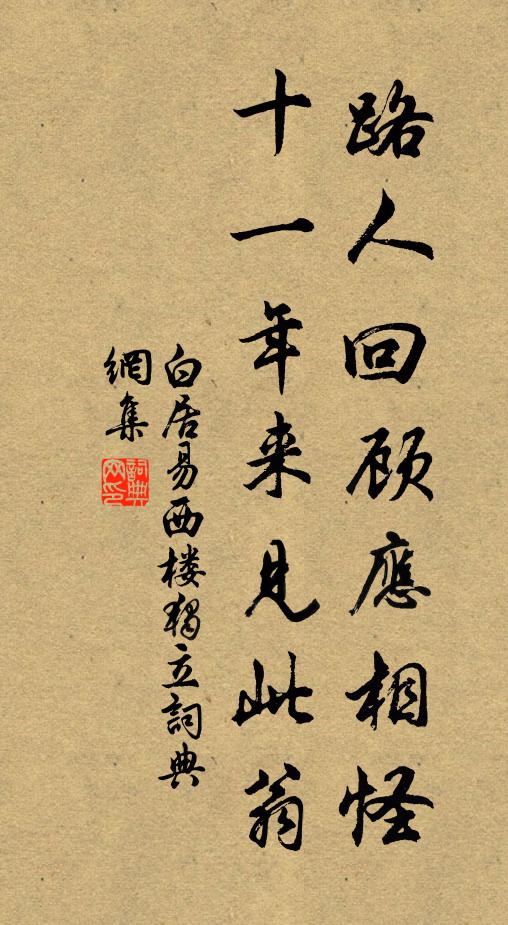 路人回顾應相怪
十一年来見此翁
白居易西楼獨立詞典
網集
詞典
网印